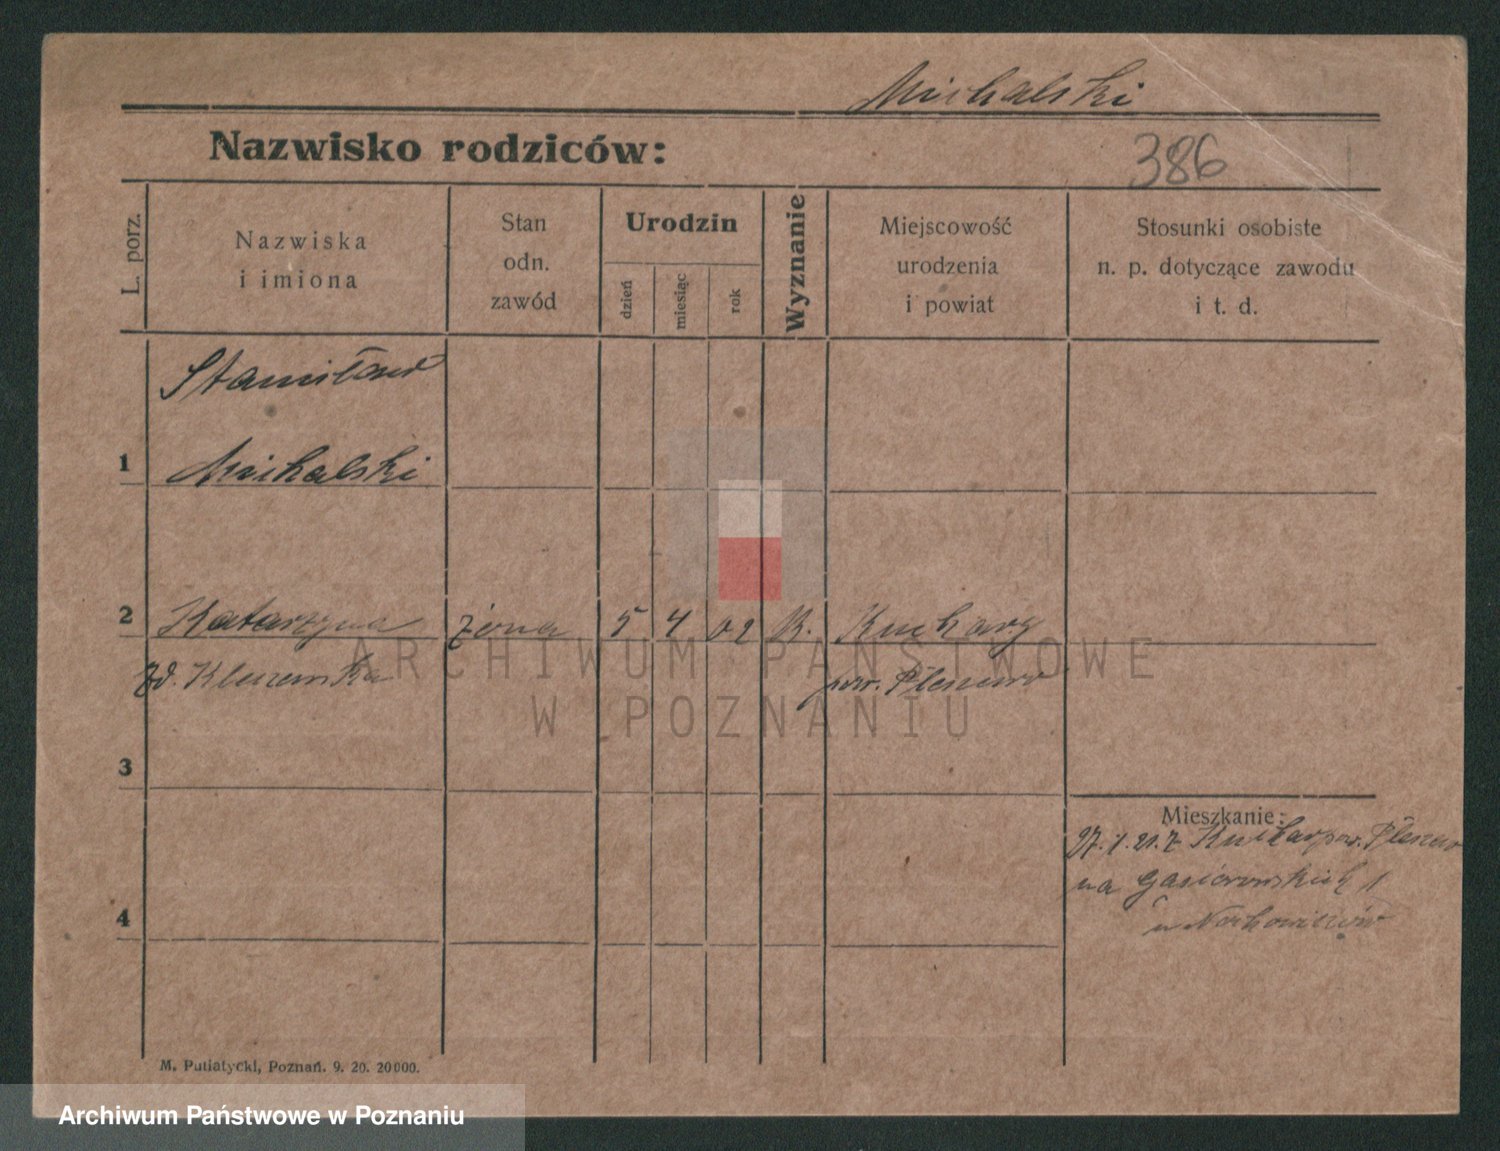 Michalski
Nazwisko rodziców:
386
L. porz.
Nazwiska
i imiona
Stan
odn.
zawód
Urodzin
dzień
miesiąc
rok
Wyznanie
Miejscowość
urodzenia
i powiat
Stosunki osobiste
n. p. dotyczące zawodu
i t. d.
Stanisław
1 Michalski
2 Katarzyna żona 5 4 02 K. Kuchary
pow. Pleszew
3
Mieszkanie:
27.1.21. z Kuchar pow. Pleszew
na Gąsiorowskich
4
u
M. Putiatycki, Poznań. 9. 20. 20000.
ARCHIWUM PAŃSTWOWE
W POZNANIU
Archiwum Państwowe w Poznaniu